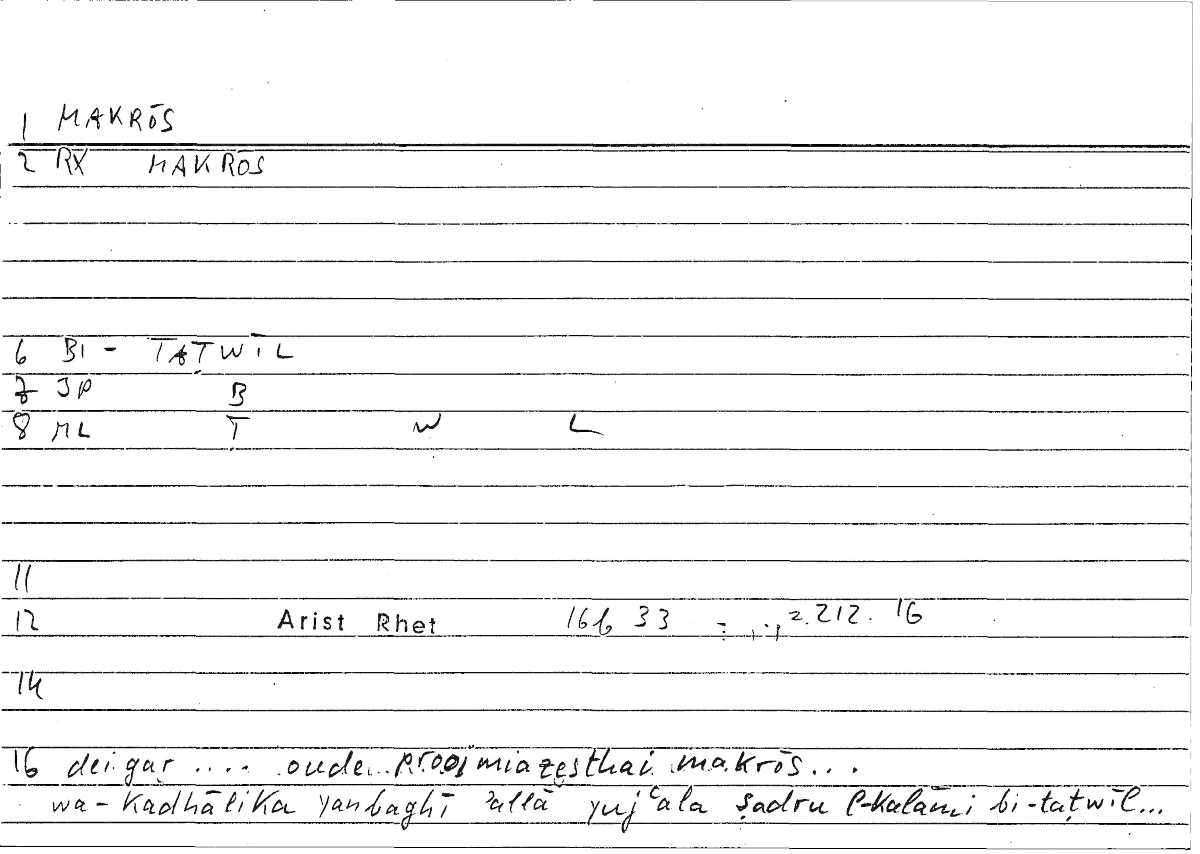 1 MAKRŌS
2 RX MAKROS
6 BI - TAṬWĪL
7 JP B
8 ML Ṭ W L
11
12 Arist Rhet 166 33 2.212. 16
14
16 dei gar .... oude prooimiazesthai makrōs...
wa-kadhālika yanbaghī ʾallā yujʿala ṣadru l-kalāmi bi-taṭwīl...